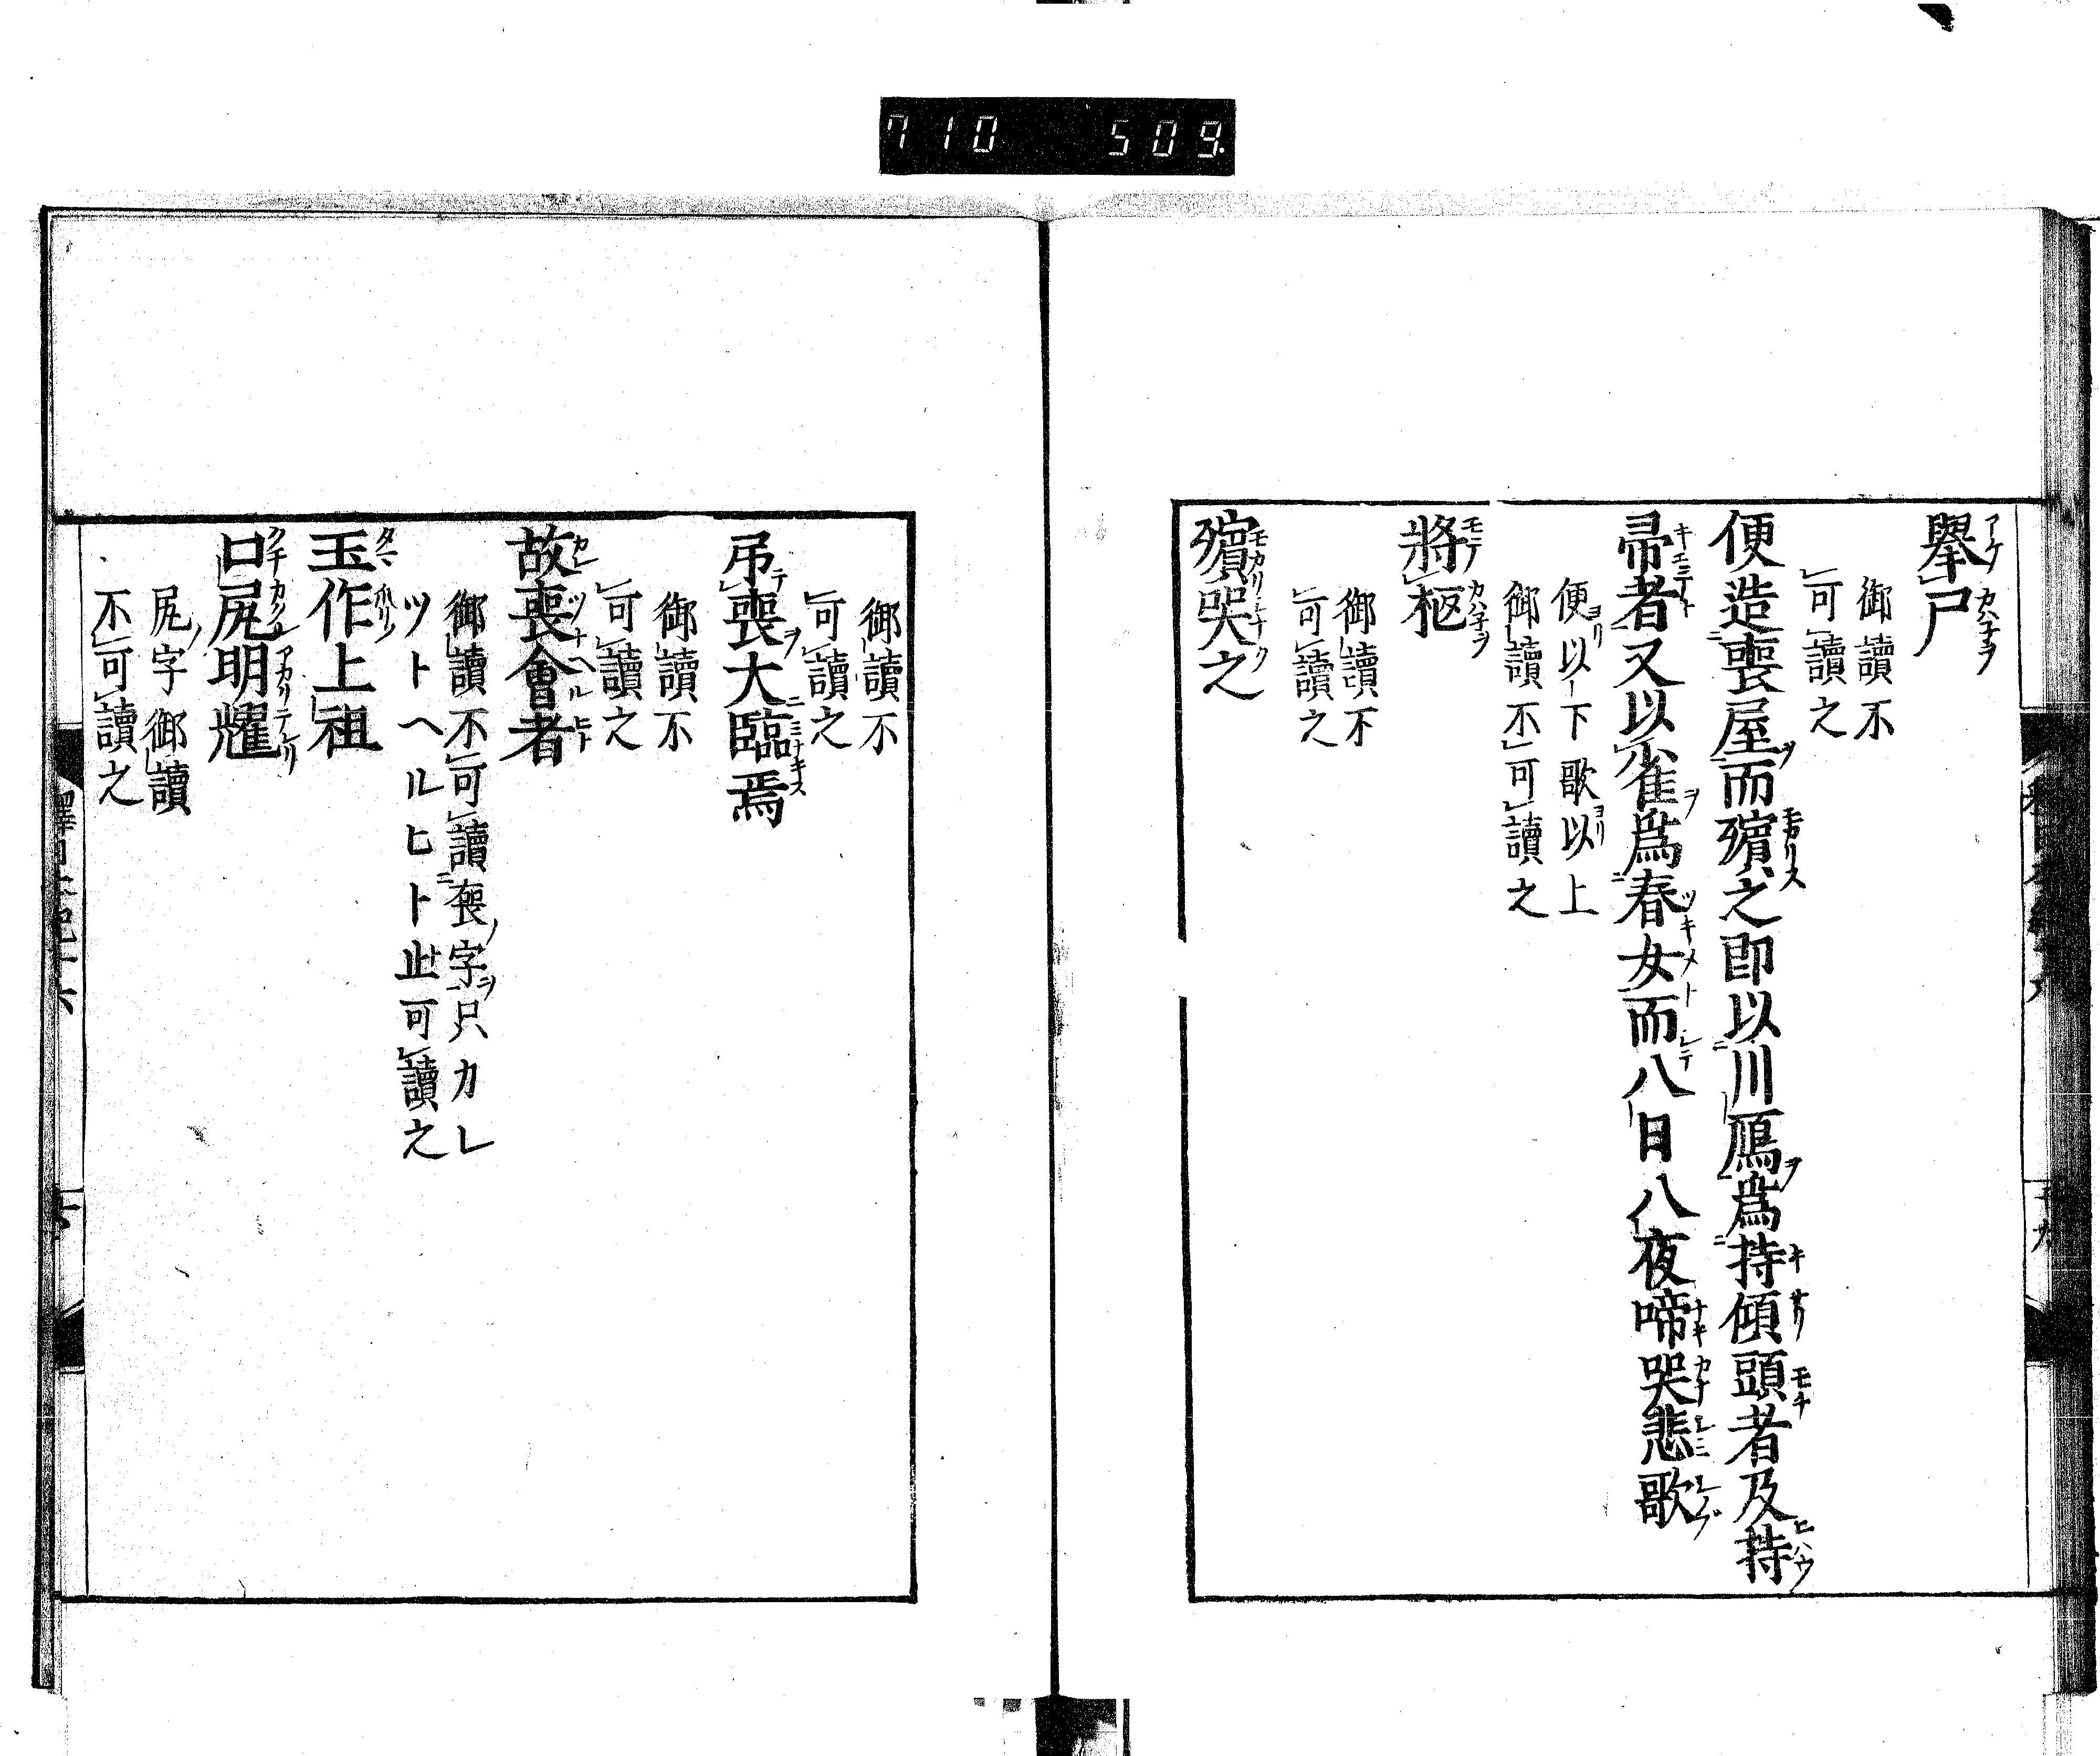 710 509
擧尸
御讀不
可讀之
便造喪屋而殯之即以川鴈爲持傾頭者及持
帚者又以雀爲春女而八日八夜啼哭悲歌
便以下歌以上
御讀不可讀之
將柩
御讀不
可讀之
殯哭之
御讀不
可讀之
弔喪大臨焉
御讀不
可讀之
故喪會者
御讀不可讀喪字只カレ
ツトヘルヒト止可讀之
玉作上祖
口尻明耀
尻字御讀
不可讀之